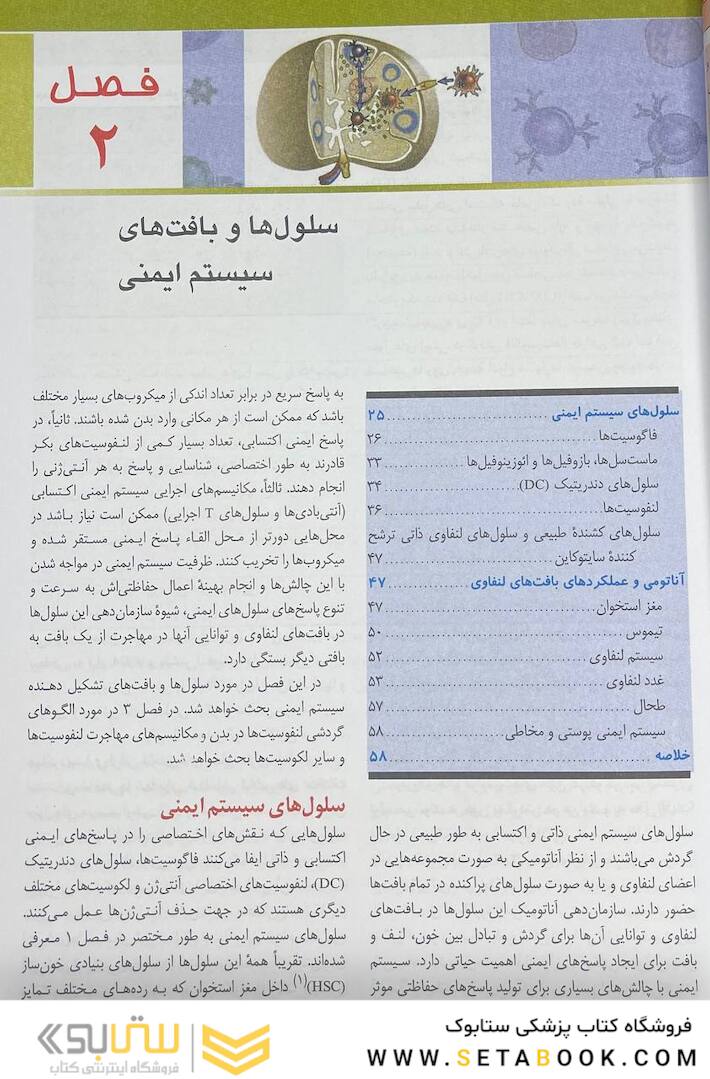 فصل
۲
سلول‌ها و بافت‌های
سیستم ایمنی
سلول‌های سیستم ایمنی ..... ۲۵
فاگوسیت‌ها ..... ۲۶
ماست‌سل‌ها، بازوفیل‌ها و ائوزینوفیل‌ها ..... ۳۳
سلول‌های دندریتیک (DC) ..... ۳۴
لنفوسیت‌ها ..... ۳۶
سلول‌های کشندهٔ طبیعی و سلول‌های لنفاوی ذاتی ترشح
کنندهٔ سایتوکاین ..... ۴۷
آناتومی و عملکردهای بافت‌های لنفاوی ..... ۴۷
مغز استخوان ..... ۴۷
تیموس ..... ۵۰
سیستم لنفاوی ..... ۵۲
غدد لنفاوی ..... ۵۳
طحال ..... ۵۷
سیستم ایمنی پوستی و مخاطی ..... ۵۸
خلاصه ..... ۵۸
سلول‌های سیستم ایمنی ذاتی و اکتسابی به طور طبیعی در حال
گردش می‌باشند و از نظر آناتومیکی به صورت مجموعه‌هایی در
اعضای لنفاوی و یا به صورت سلول‌های پراکنده در تمام بافت‌ها
حضور دارند. سازمان‌دهی آناتومیک این سلول‌ها در بافت‌های
لنفاوی و توانایی آن‌ها برای گردش و تبادل بین خون، لنف و
بافت برای ایجاد پاسخ‌های ایمنی اهمیت حیاتی دارد. سیستم
ایمنی با چالش‌های بسیاری برای تولید پاسخ‌های حفاظتی موثر
به پاسخ سریع در برابر تعداد اندکی از میکروب‌های بسیار مختلف
باشد که ممکن است از هر مکانی وارد بدن شده باشند. ثانیاً، در
پاسخ ایمنی اکتسابی، تعداد بسیار کمی از لنفوسیت‌های بکر
قادرند به طور اختصاصی، شناسایی و پاسخ به هر آنتی‌ژنی را
انجام دهند. ثالثاً، مکانیسم‌های اجرایی سیستم ایمنی اکتسابی
(آنتی‌بادی‌ها و سلول‌های T اجرایی) ممکن است نیاز باشد در
محل‌هایی دورتر از محل القاء پاسخ ایمنی مستقر شده و
میکروب‌ها را تخریب کنند. ظرفیت سیستم ایمنی در مواجه شدن
با این چالش‌ها و انجام بهینهٔ اعمال حفاظتی‌اش به سرعت و
تنوع پاسخ‌های سلول‌های ایمنی، شیوهٔ سازمان‌دهی این سلول‌ها
در بافت‌های لنفاوی و توانایی آنها در مهاجرت از یک بافت به
بافتی دیگر بستگی دارد.
در این فصل در مورد سلول‌ها و بافت‌های تشکیل دهنده
سیستم ایمنی بحث خواهد شد. در فصل ۳ در مورد الگوهای
گردشی لنفوسیت‌ها در بدن و مکانیسم‌های مهاجرت لنفوسیت‌ها
و سایر لکوسیت‌ها بحث خواهد شد.
سلول‌های سیستم ایمنی
سلول‌هایی که نقش‌های اختصاصی را در پاسخ‌های ایمنی
اکتسابی و ذاتی ایفا می‌کنند فاگوسیت‌ها، سلول‌های دندریتیک
(DC)، لنفوسیت‌های اختصاصی آنتی‌ژن و لکوسیت‌های مختلف
دیگری هستند که در جهت حذف آنتی‌ژن‌ها عمل می‌کنند.
سلول‌های سیستم ایمنی به طور مختصر در فصل ۱ معرفی
شده‌اند. تقریباً همهٔ این سلول‌ها از سلول‌های بنیادی خون‌ساز
(HSC)(۱) داخل مغز استخوان که به رده‌های مختلف تمایز
فروشگاه کتاب پزشکی ستابوک
WWW.SETABOOK.COM
ستابوک
فروشگاه اینترنتی کتاب